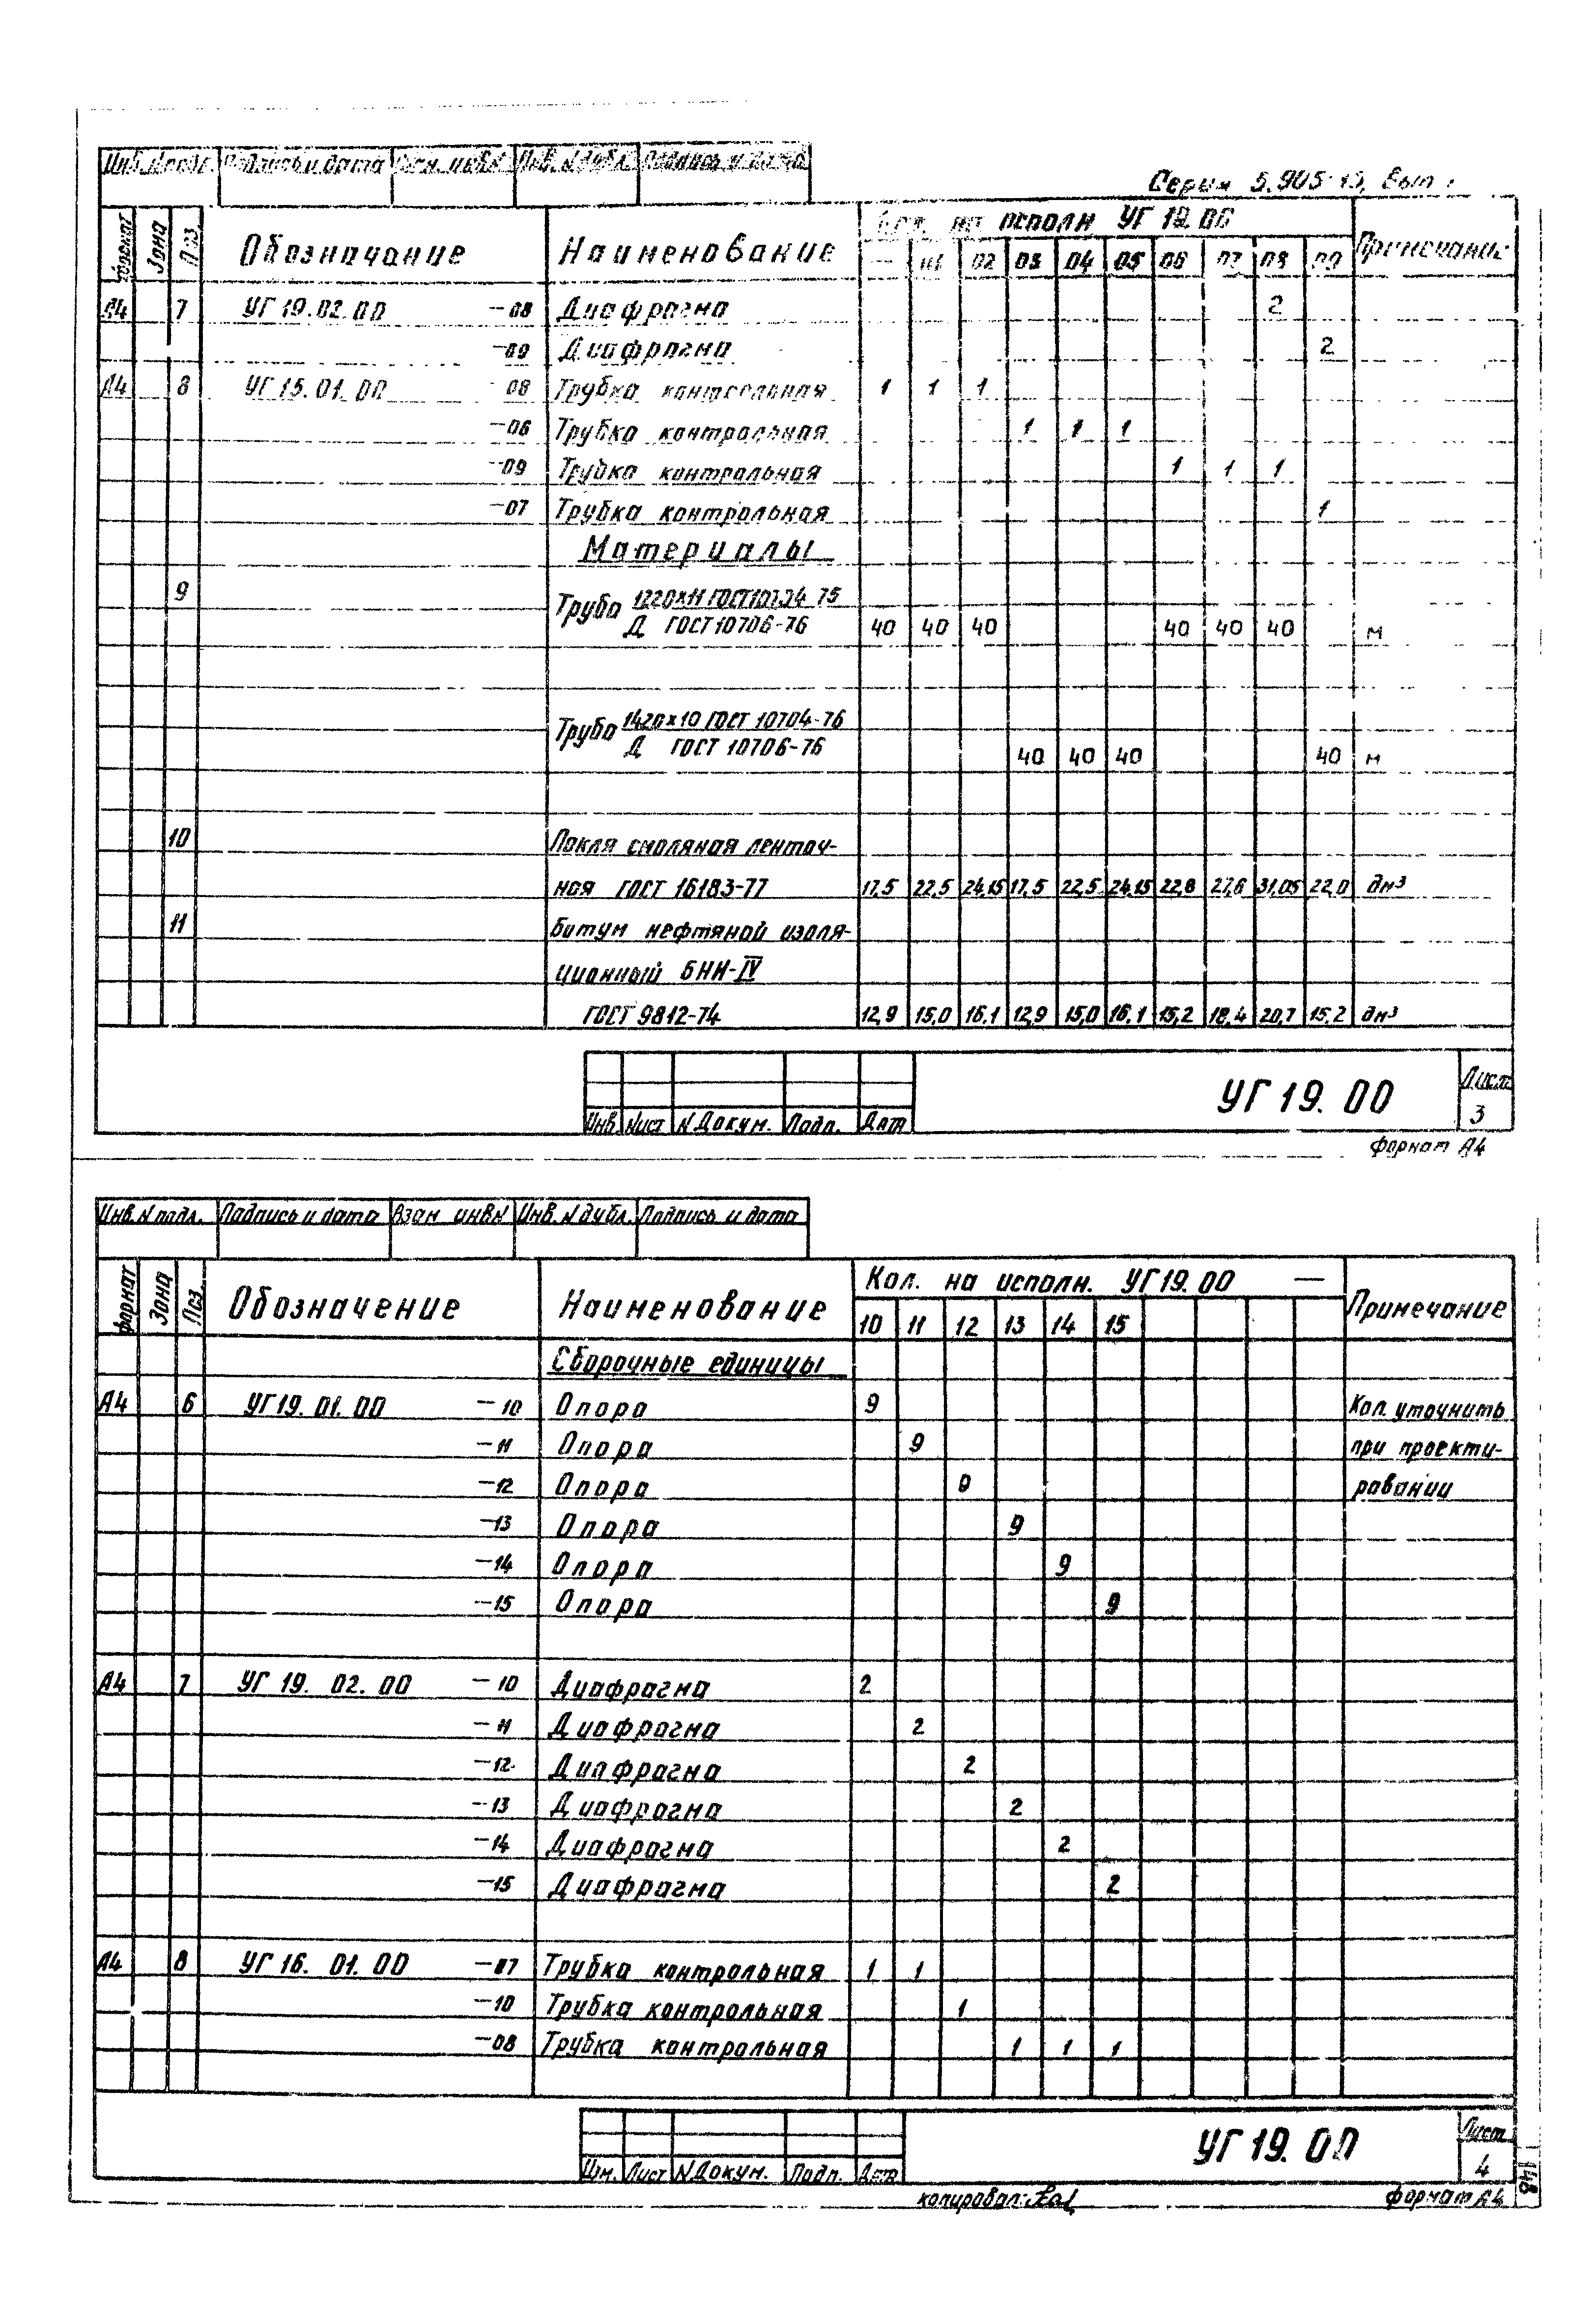 Инв. N подл. Подпись и дата Взам. инв N Инв. N дубл. Подпись и дата
Серия 5.905-15, Вып
Формат Зона Поз. Обозначение Наименование Кол. на исполн УГ 19.00 Примечание
— 01 02 03 04 05 06 07 08 09
А4 7 УГ 19.02.00 -08 Диафрагма 2
-09 Диафрагма 2
А4 8 УГ 15.01.00 -08 Трубка контрольная 1 1 1
-06 Трубка контрольная 1 1 1
-09 Трубка контрольная 1 1 1
-07 Трубка контрольная 1
Материалы
9 Труба 1220×11 ГОСТ 10704-76
Д ГОСТ 10706-76 40 40 40 40 40 40 м
Труба 1420×10 ГОСТ 10704-76
Д ГОСТ 10706-76 40 40 40 40 м
10 Пакля смоляная ленточ-
ная ГОСТ 16183-77 17,5 22,5 24,15 17,5 22,5 24,15 22,8 27,6 31,05 22,0 дм³
11 Битум нефтяной изоля-
ционный БНИ-IV
ГОСТ 9812-74 12,9 15,0 16,1 12,9 15,0 16,1 15,2 18,4 20,7 15,2 дм³
УГ 19.00 Лист
Инв Лист N Докум. Подп. Дата 3
формат А4
Инв. N подл. Подпись и дата Взам инв N Инв. N дубл. Подпись и дата
формат Зона Поз. Обозначение Наименование Кол. на исполн. УГ 19.00 — Примечание
10 11 12 13 14 15
Сборочные единицы
А4 6 УГ 19.01.00 -10 Опора 9 Кол. уточнить
-11 Опора 9 при проекти-
-12 Опора 9 ровании
-13 Опора 9
-14 Опора 9
-15 Опора 9
А4 7 УГ 19.02.00 -10 Диафрагма 2
-11 Диафрагма 2
-12 Диафрагма 2
-13 Диафрагма 2
-14 Диафрагма 2
-15 Диафрагма 2
А4 8 УГ 16.01.00 -07 Трубка контрольная 1 1
-10 Трубка контрольная 1
-08 Трубка контрольная 1 1 1
УГ 19.00 Лист
Изм. Лист N Докум. Подп. Дата 4
копировал: формат А4
148